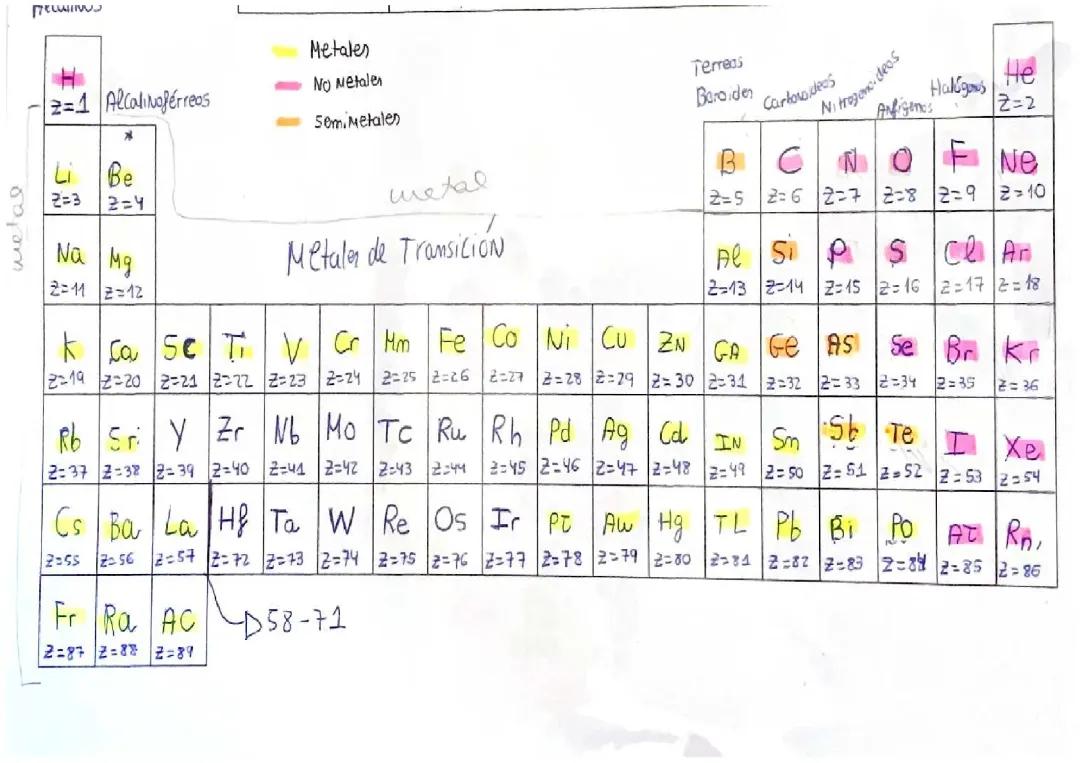 Metales
No Metales
Semimetales
H
Z=1
Alcalinoférreos
*
Terreos
Boroides
Carbonoideos
Nitrogenoideos
Anfígenos
Halógenos
He
Z=2
metal
metal
Li Be B C N O F Ne
Z=3 Z=4 Z=5 Z=6 Z=7 Z=8 Z=9 Z=10
Metales de Transición
Na Mg Al Si P S Cl Ar
Z=11 Z=12 Z=13 Z=14 Z=15 Z=16 Z=17 Z=18
K Ca Sc Ti V Cr Mn Fe Co Ni Cu ZN GA Ge AS Se Br Kr
Z=19 Z=20 Z=21 Z=22 Z=23 Z=24 Z=25 Z=26 Z=27 Z=28 Z=29 Z=30 Z=31 Z=32 Z=33 Z=34 Z=35 Z=36
Rb Sr Y Zr Nb Mo Tc Ru Rh Pd Ag Cd IN Sn Sb Te I Xe
Z=37 Z=38 Z=39 Z=40 Z=41 Z=42 Z=43 Z=44 Z=45 Z=46 Z=47 Z=48 Z=49 Z=50 Z=51 Z=52 Z=53 Z=54
Cs Ba La Hf Ta W Re Os Ir PT Au Hg TL Pb Bi Po AT Rn
Z=55 Z=56 Z=57 Z=72 Z=73 Z=74 Z=75 Z=76 Z=77 Z=78 Z=79 Z=80 Z=81 Z=82 Z=83 Z=84 Z=85 Z=86
Fr Ra AC
Z=87 Z=88 Z=89
58-71